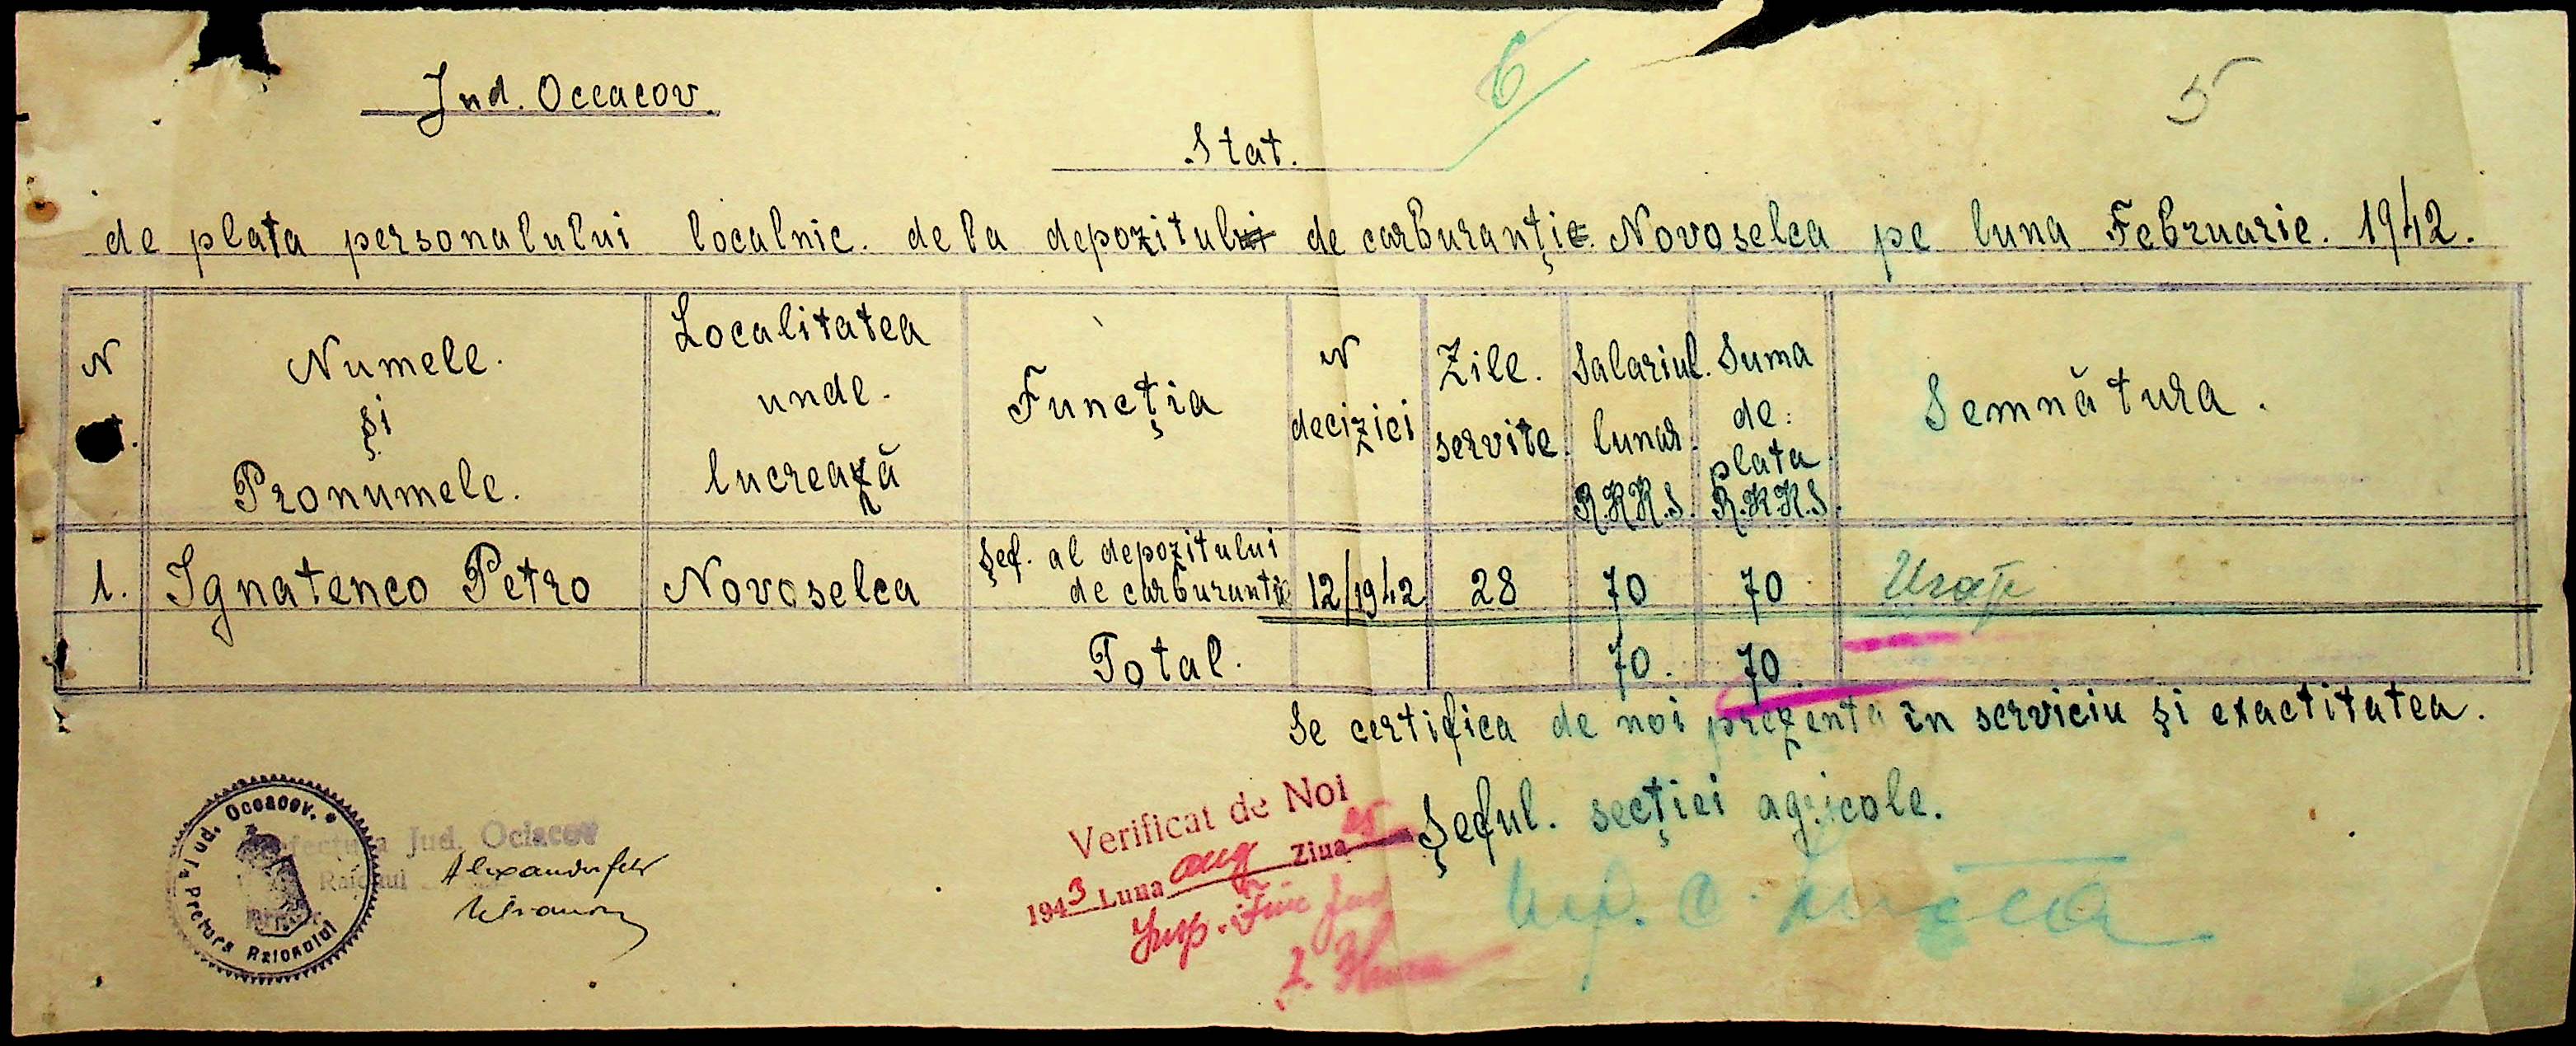 Jud. Occacov
6
5
Stat.
de plata personalului localnic. de la depozitului de carburanție. Novoselca pe luna Februarie. 1942.
N
Numele.
și
Pronumele.
Localitatea
unde.
lucrează
Funcția
N
deciziei
Zile.
servite.
Salariul.
lunar.
R.K.K.S.
Suma
de:
plata
R.K.K.S.
Semnătura.
1. Ignatenco Petro Novoselca Șef. al depozitului
de carburanti 12/1942 28 70 70
Total. 70. 70.
Se certifica de noi prezenta în serviciu și exactitatea.
Șeful. secției agricole.
Verificat de Noi
1943 Luna aug Ziua
Insp. Fin Jud
Jud. Oceacov.
Pretura Raionului
Prefectura Jud. Ociacov
Raionul